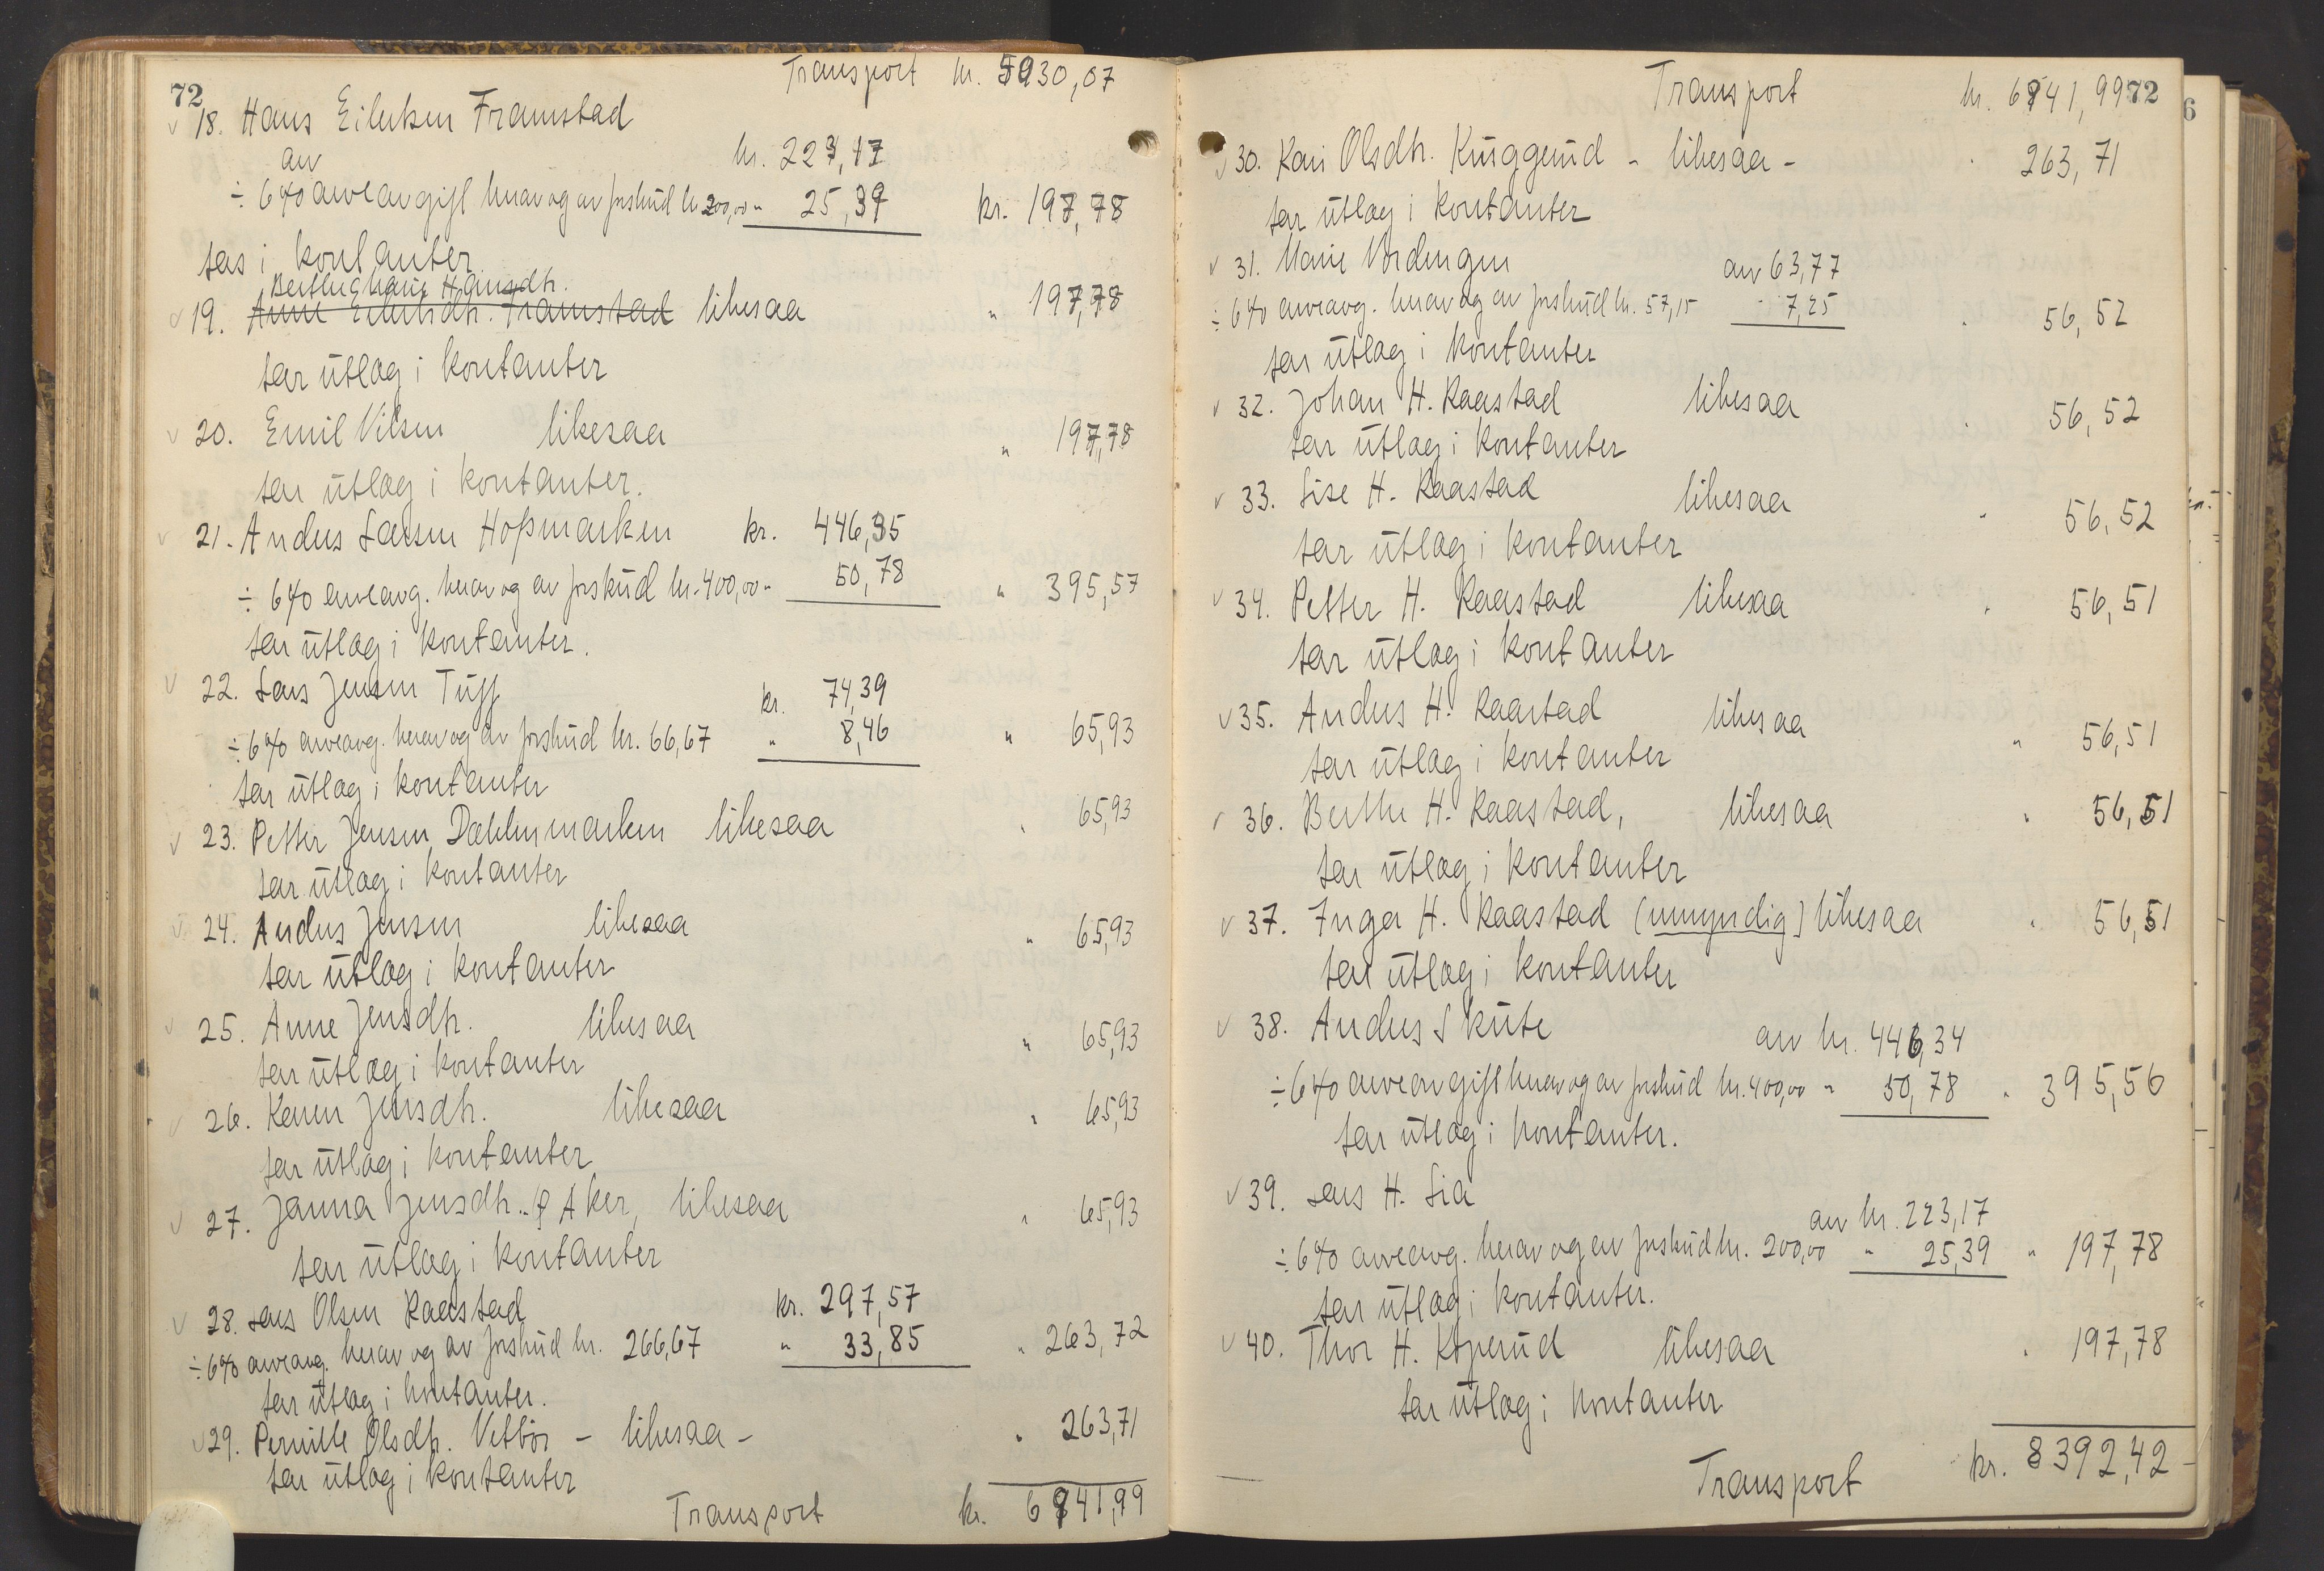 72
Transport kr. 5930,07
18. Hans Eileksen Framstad
av kr. 223,17
÷ 6% arveavgift herav og av forskud kr. 200,00 " 25,39 kr. 197,78
tas i kontanter
Berthe Marie Hansdh.
19. Anne Eileksdh. Framstad likesaa " 197,78
tar utlæg i kontanter
20. Emil Nilsen likesaa " 197,78
tar utlæg i kontanter.
21. Anders Larsen Hofsmarken kr. 446,35
÷ 6% arveavg. herav og av forskud kr. 400,00 " 50,78 " 395,57
tar utlæg i kontanter.
22. Lars Jensen Tuff kr. 74,39
÷ 6% arveavg. herav og av forskud kr. 66,67 " 8,46 " 65,93
tar utlæg i kontanter
23. Petter Jensen Dæhlenmarken likesaa " 65,93
tar utlæg i kontanter
24. Anders Jensen likesaa " 65,93
tar utlæg i kontanter
25. Anne Jensdh. likesaa " 65,93
tar utlæg i kontanter
26. Karen Jensdh. likesaa " 65,93
tar utlæg i kontanter
27. Janna Jensdh. Aker, likesaa " 65,93
tar utlæg i kontanter
28. Lars Olsen Raastad kr. 297,57
÷ 6% arveavg. herav og av forskud kr. 266,67 " 33,85 " 263,72
tar utlæg i kontanter.
29. Pernille Olsdh. Vetbör - likesaa - " 263,71
tar utlæg i kontanter
Transport kr. 6941,99
Transport kr. 6941,99 72
6
30. Kari Olsdh. Kruggerud - likesaa - " 263,71
tar utlæg i kontanter
31. Marie Nordengen av 63,77
÷ 6% arveavg. herav og av forskud kr. 57,15 " 7,25 " 56,52
tar utlæg i kontanter
32. Johan H. Raastad likesaa " 56,52
tar utlæg i kontanter
33. Lise H. Raastad likesaa " 56,52
tar utlæg i kontanter
34. Petter H. Raastad likesaa " 56,51
tar utlæg i kontanter
35. Anders H. Raastad likesaa " 56,51
tar utlæg i kontanter
36. Berthe H. Raastad, likesaa " 56,51
tar utlæg i kontanter
37. Inga H. Raastad (umyndig) likesaa " 56,51
tar utlæg i kontanter
38. Anders Skute av kr. 446,34
÷ 6% arveavgift herav og av forskud kr. 400,00 " 50,78 " 395,56
tar utlæg i kontanter.
39. Lars H. Lia av kr. 223,17
÷ 6% arveavg. herav og av forskud kr. 200,00 " 25,39 " 197,78
tar utlæg i kontanter.
40. Thor H. Kopperud likesaa " 197,78
tar utlæg i kontanter
Transport kr. 8392,42